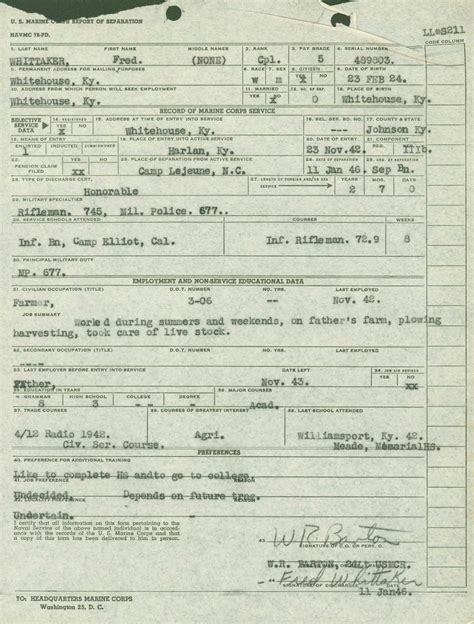 U. S. MARINE CORPS REPORT OF SEPARATION
NAVMC 78-PD.
LL#S211
CODE COLUMN
1. LAST NAME FIRST NAME MIDDLE NAMES 2. RANK 3. PAY GRADE 4. SERIAL NUMBER
WHITTAKER, Fred. (NONE) Cpl. 5 489803.
5. PERMANENT ADDRESS FOR MAILING PURPOSES 6. RACE 7. SEX 8. CITIZEN 9. DATE OF BIRTH
Whitehouse, Ky. W m X 23 FEB 24.
10. ADDRESS FROM WHICH PERSON WILL SEEK EMPLOYMENT 11. MARRIED 12. NO. DEP. 13. PLACE OF BIRTH
Whitehouse, Ky. X 0 Whitehouse, Ky.
RECORD OF MARINE CORPS SERVICE
SELECTIVE SERVICE DATA 14. REGISTERED YES NO 15. ADDRESS AT TIME OF ENTRY INTO SERVICE 16. SEL. SER. BD. NO. 17. COUNTY & STATE
X Whitehouse, Ky. --- Johnson Ky
18. MEANS OF ENTRY 19. PLACE OF ENTRY INTO ACTIVE SERVICE 20. DATE OF ENTRY 21. COMPONENT
ENLISTED INDUCTED COMMISSIONED
1 Harlan, Ky. 23 Nov.42.
PENSION CLAIM FILED YES NO 23. PLACE OF SEPARATION FROM ACTIVE SERVICE
xx Camp Lejeune, N.C. 11 Jan 46. Sep Bn.
26. TYPE OF DISCHARGE CERT. 27. LENGTH OF FOREIGN AND/OR SEA SERVICE YEARS MOS. DAYS
Honorable 2 7 0
28. MILITARY SPECIALTIES
Rifleman. 745, Mil. Police. 677..
COURSES WEEKS
Inf. Bn, Camp Elliot, Cal. Inf. Rifleman. 72.9 8
30. PRINCIPAL MILITARY DUTY
MP. 677.
EMPLOYMENT AND NON-SERVICE EDUCATIONAL DATA
31. CIVILIAN OCCUPATION (TITLE) D.O.T. NUMBER NO. YRS. LAST EMPLOYED
Farmer, 3-06 -- Nov. 42.
JOB SUMMARY
Worked during summers and weekends, on father's farm, plowing
harvesting, took care of live stock.
32. SECONDARY OCCUPATION (TITLE) D.O.T. NUMBER NO. YRS. LAST EMPLOYED
33. LAST EMPLOYER BEFORE ENTRY INTO SERVICE DATE LEFT YES NO
Father, Nov. 43. xx
35. EDUCATION IN YEARS 36. MAJOR COURSES
GRAMMAR HIGH SCHOOL COLLEGE DEGREE
8 3 - - Acad.
37. TRADE COURSES 38. COURSES OF GREATEST INTEREST 39. LAST SCHOOL ATTENDED
4/12 Radio 1942. Agri. Williamsport, Ky. 42.
Civ. Ser. Course. Meade, MemorialHS.
PREFERENCES
40. PREFERENCE FOR ADDITIONAL TRAINING
Like to complete HS andto go to college.
41. JOB PREFERENCE
Undecided. Depends on future trng.
42. LOCALITY PREFERENCE
Uncertain.
I certify that all information on this form pertaining to the
Naval Service of the above named individual is in accord
with the records of the U. S. Marine Corps and that
a copy of this form has been delivered to him in person.
43. W. R. Barton
SIGNATURE OF C.O. OR PERS. O.
W.R. BARTON, 2dLt USMCR.
44. Fred Whittaker
11 Jan46.
TO: HEADQUARTERS MARINE CORPS
Washington 25, D. C.